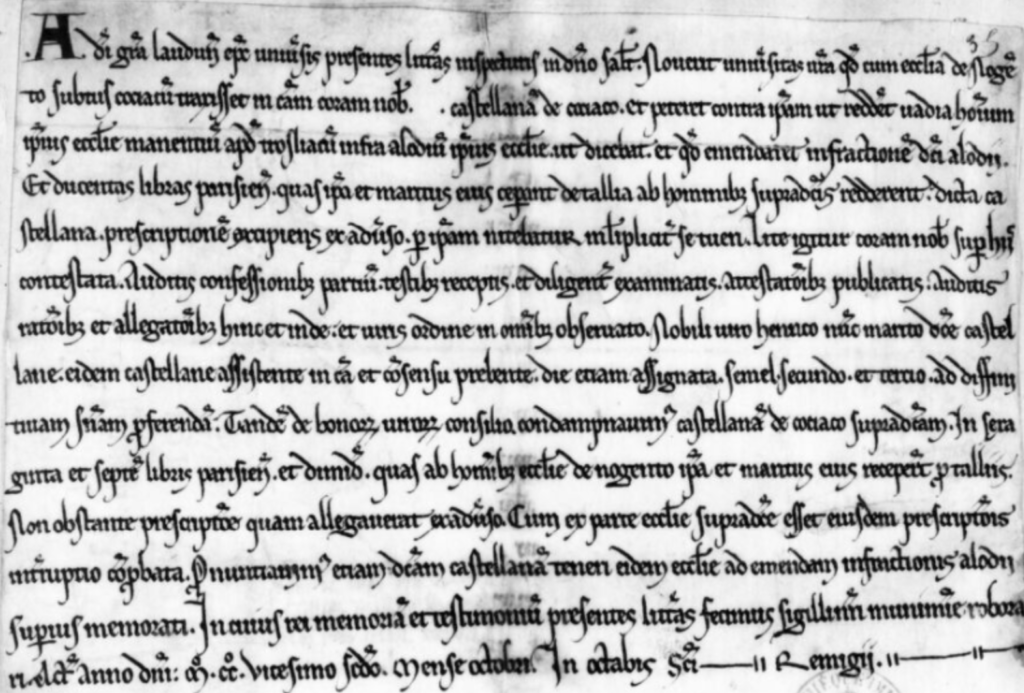 .A. dī grā laudun̄ epc̄ univ̄sis presentes litt̄as inspecturis in dn̄o salt̄. Noverit univ̄sitas vr̄a qd̄ cum eccl̄ia de Nogē
to subtus cociacū traxisset in cām coram nob̄. . castellanā de cociaco. et peteret contra ip̄am ut reddet̄ vadia hoīum
ip̄ius eccl̄ie manentiū apd̄ trosliacū infra alodiū ip̄ius eccl̄ie. ut dicebat. et qd̄ emendaret infractionē dc̄i alodii.
Et ducentas libras parisien̄. quas ip̄a et maritus eius cep̄ant de tallia ab hominibȝ supradc̄is redderent. dicta ca
stellana. prescriptionē excipiens ex adv̄so. p̱ ip̄am nitebatur ml̄tiplicit̄ se tueri. Lite igitur coram nob̄ sup̱ hiis
contestata. Auditis confessionibȝ partiū. testibȝ receptis. et diligent̄ examinatis. attestatōibȝ publicatis. auditis
ratōibȝ et allegatōibȝ hinc et inde. et iuris ordine in om̄ibȝ observato. Nobili viro henrico nūc marito dc̄e castel
lane. eidem castellane assistente in cā et cōsensu prebente. die etiam assignata. semel. secundo. et tercio. ad diffini
tivam sn̄iam p̱ferendā. Tandē de bonorꝝ virorꝝ consilio. condampnavimꝰ castellanā de cociaco supradc̄am. In sexa
ginta et septē libris parisien̄. et dimid̄. quas ab hoīibȝ eccl̄ie de nogento ip̄a et maritus eius recep̱ant̄ p̱ talliis.
Non obstante prescriptōe quam allegaverat ex adv̄so. Cum ex parte eccl̄ie supradc̄e esset eiusdem prescriptōis
int̄ruptio cōp̱bata. P̱nuntiavimꝰ etiam dc̄am castellanā teneri eidem eccl̄ie ad emendam infractionis alodii
sup̱ius memorati. In cuius rei memoriā et testimoniū presentes litt̄as fecimus sigilli nr̄i munimīe robora
ri. Act̄ anno dn̄i: m̊. cc̊. vicesimo scd̄o. Mense octobri. In octabis Sc̄i —— ıı Remigii. ıı —— ıı ——